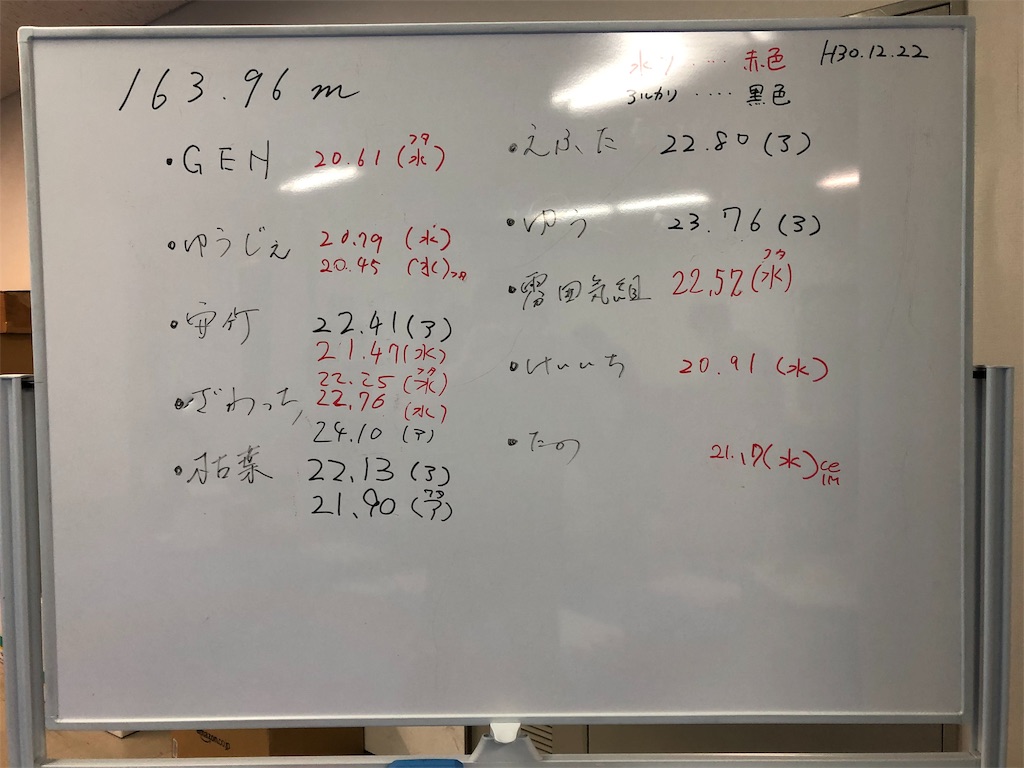 163.96 m
水り ‥‥ 赤色
アルカリ ‥‥ 黒色
H30.12.22
・GEN 20.61 (水) フタ
・ゆうじぇ 20.79 (水)
20.45 (水)フタ
・安竹 22.41 (ア)
21.47 (水)
・ざわっち 22.25 (水) フタ
22.76 (水)
24.10 (ア)
・枯葉 22.13 (ア)
21.90 (ア) フタ
・えふた 22.80 (ア)
・ゆう 23.76 (ア)
・雰囲気組 22.52 (水) フタ
・けいいち 20.91 (水)
・たの 21.17 (水)
amazon.co.jp